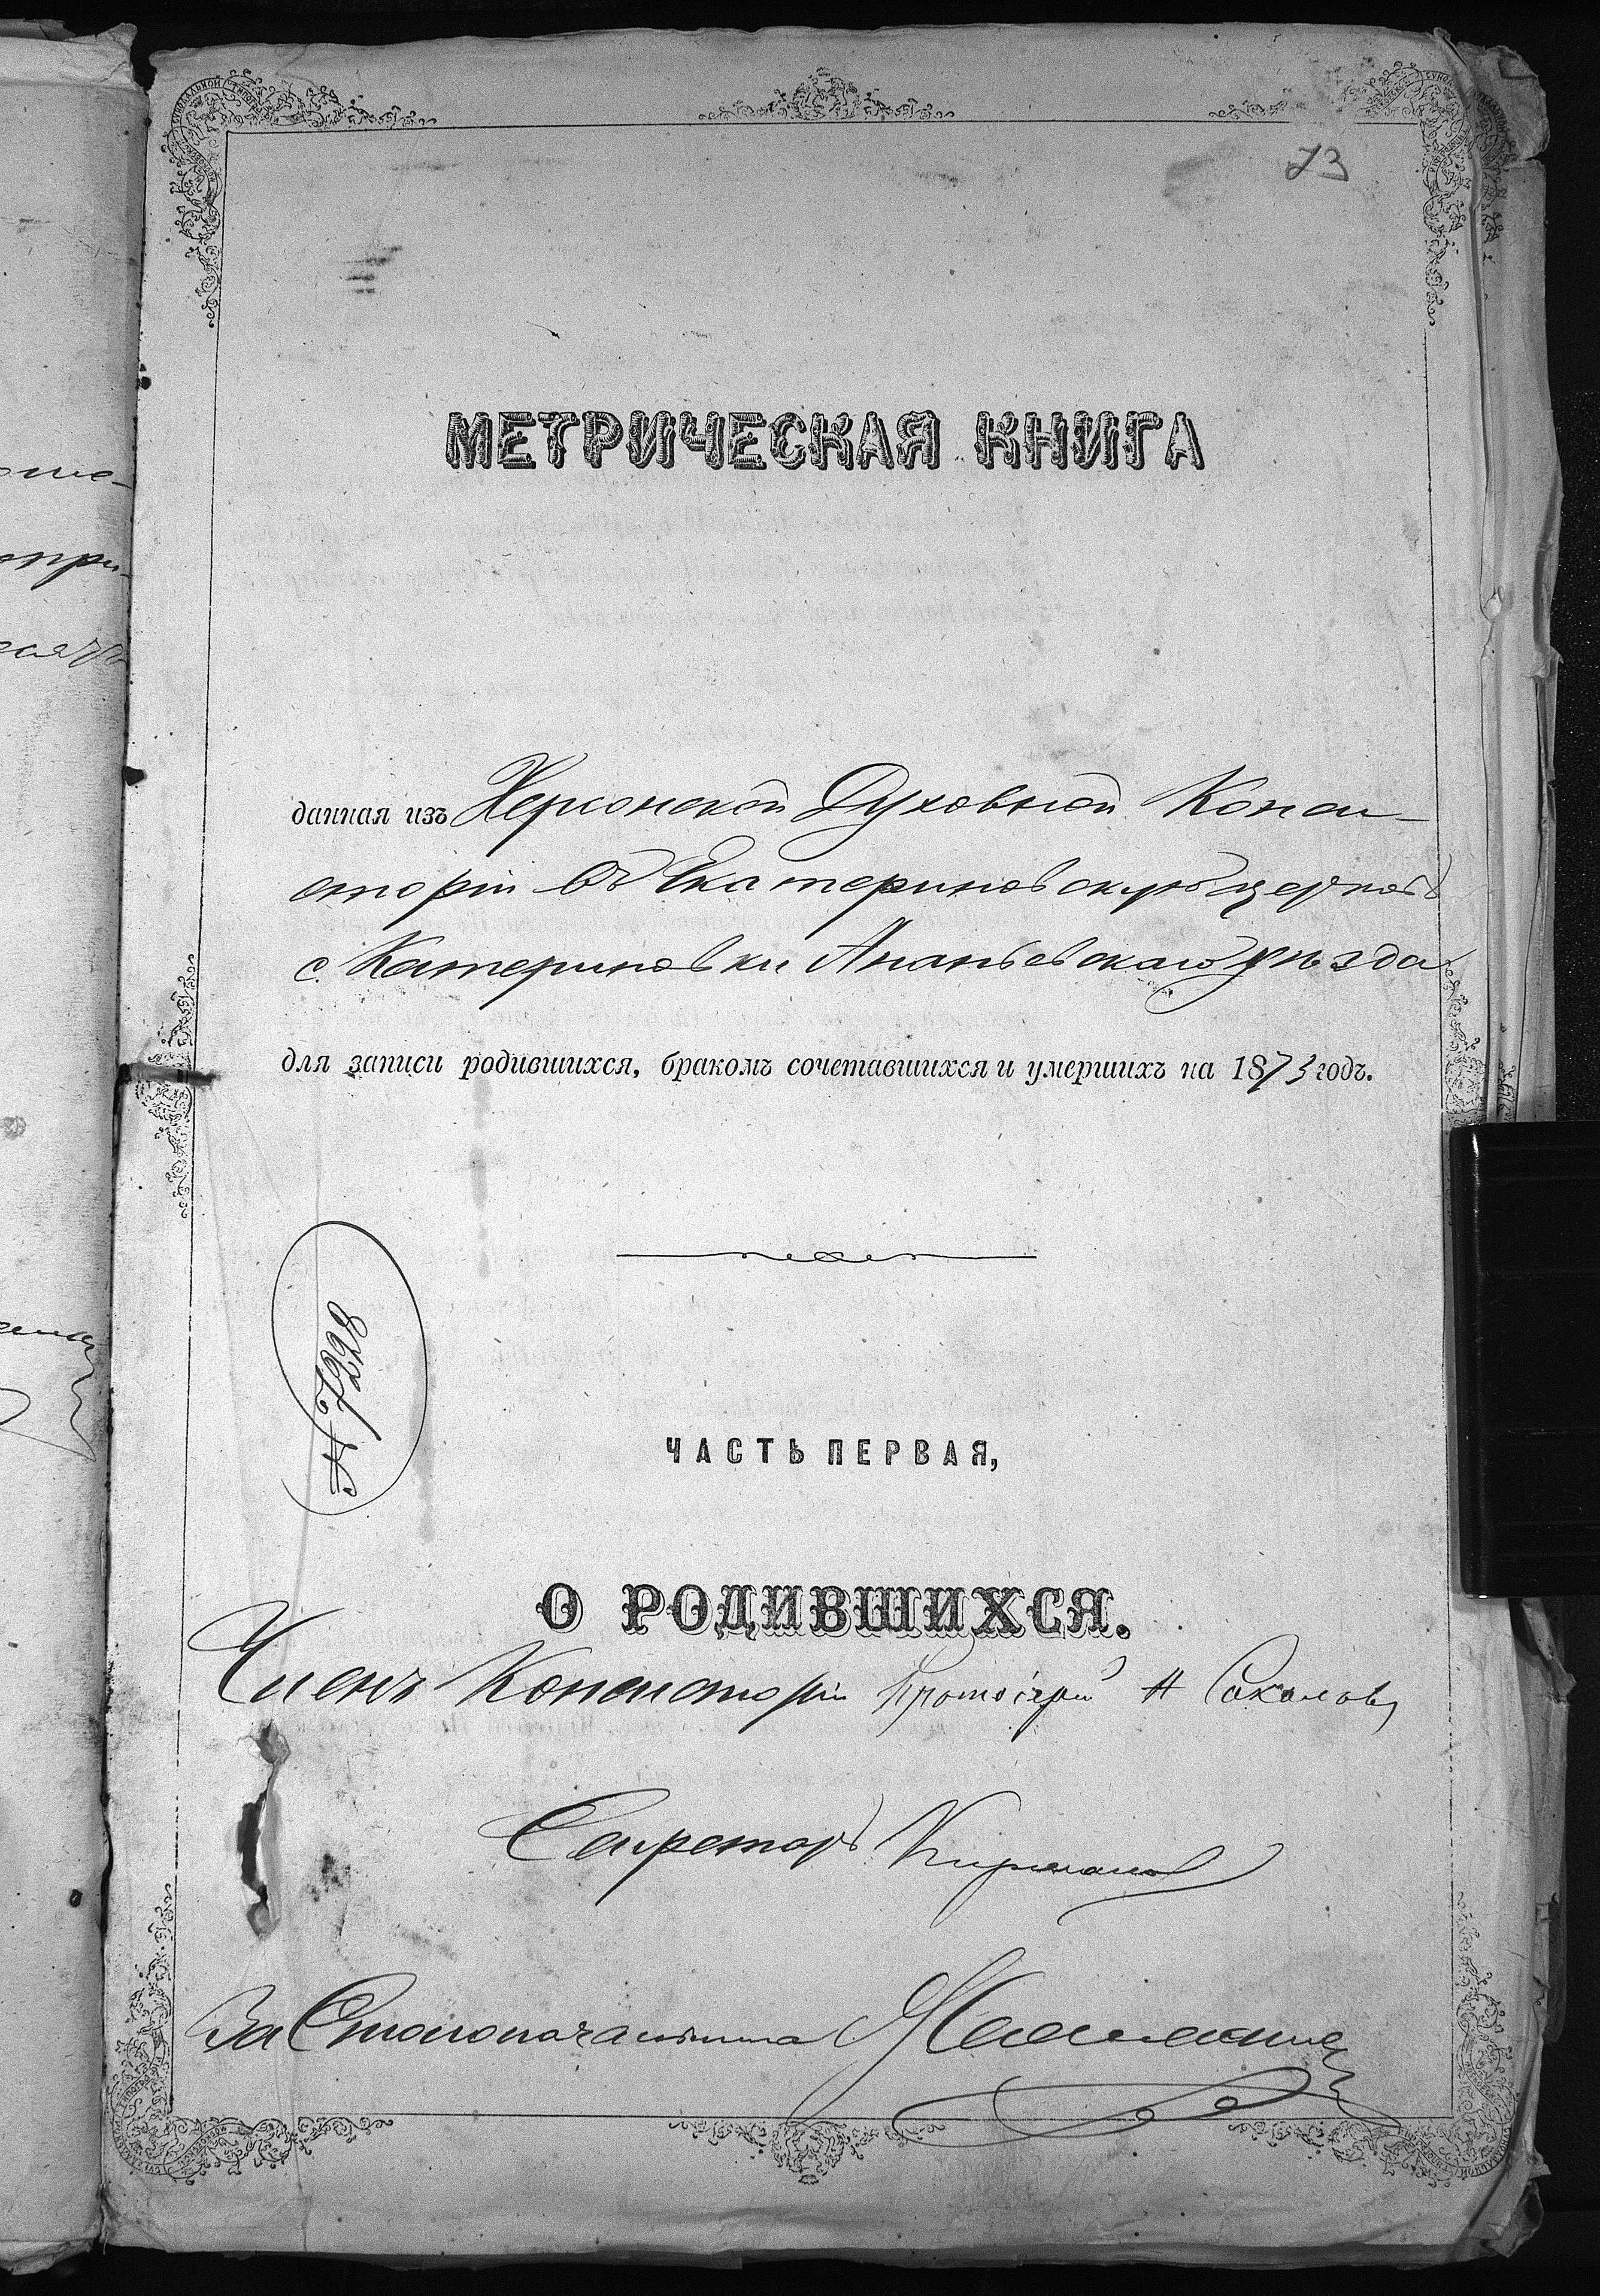 73
МЕТРИЧЕСКАЯ КНИГА
данная изъ Херсонской Духовной Конси-
сторіи въ Екатериновскую церковь
с. Катериновки Ананьевскаго уѣзда
для записи родившихся, бракомъ сочетавшихся и умершихъ на 1873 годъ.
№ 7228
ЧАСТЬ ПЕРВАЯ,
О РОДИВШИХСЯ.
Членъ Консисторіи Протоіерей Н Соколовъ
Секретарь
За Столоначальника